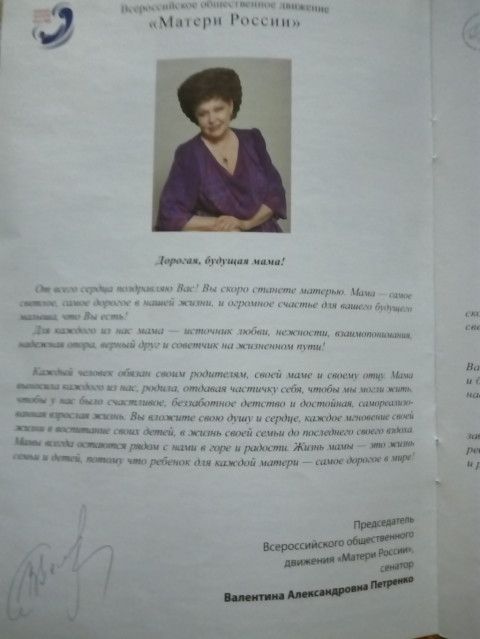 Всероссийское общественное движение
«Матери России»
Дорогая, будущая мама!
От всего сердца поздравляю Вас! Вы скоро станете матерью. Мама — самое
светлое, самое дорогое в нашей жизни, и огромное счастье для вашего будущего
малыша, что Вы есть!
Для каждого из нас мама — источник любви, нежности, взаимопонимания,
надежная опора, верный друг и советчик на жизненном пути!
Каждый человек обязан своим родителям, своей маме и своему отцу. Мама
выносила каждого из нас, родила, отдавая частичку себя, чтобы мы могли жить,
чтобы у нас было счастливое, беззаботное детство и достойная, самореализо-
ванная взрослая жизнь. Вы вложите свою душу и сердце, каждое мгновение своей
жизни в воспитание своих детей, в жизнь своей семьи до последнего своего вздоха.
Мамы всегда остаются рядом с нами в горе и радости. Жизнь мамы — это жизнь
семьи и детей, потому что ребенок для каждой матери — самое дорогое в мире!
Председатель
Всероссийского общественного
движения «Матери России»,
сенатор
Валентина Александровна Петренко